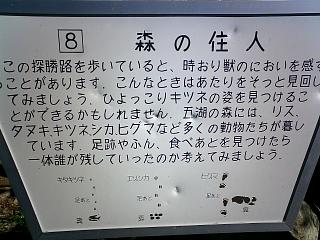 8 森の住人
この探勝路を歩いていると、時おり獣のにおいを感ず
ることがあります。こんなときはあたりをそっと見回し
てみましょう。ひょっこりキツネの姿を見つけるこ
とができるかもしれません。五湖の森には、リス、
タヌキ、キツネ、シカ、ヒグマなど多くの動物たちが暮し
ています。足跡やふん、食べあとを見つけたら
一体誰が残していったのか考えてみましょう。
キタキツネ エゾシカ ヒグマ
足あと 足あと 足あと
糞 糞 糞